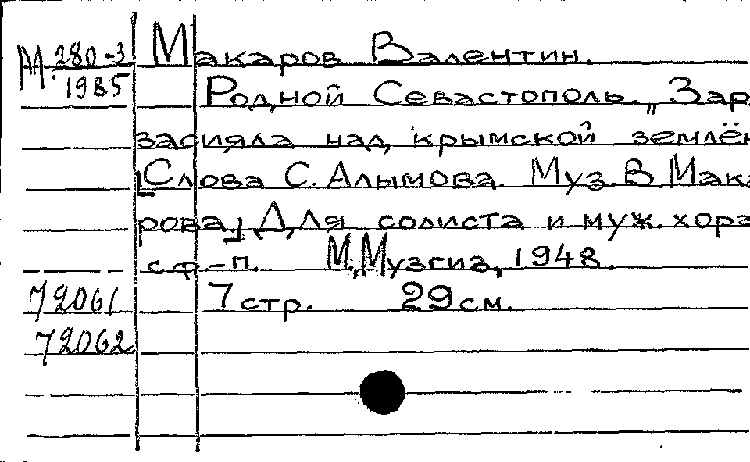 М 280-3 Макаров Валентин.
1985 Родной Севастополь. „Зар
засияла над крымской землён
[Слова С. Алымова. Муз. В. Мака
рова.] Для солиста и муж. хора
с ф-п. М., Музгиз, 1948.
72061 7 стр. 29 см.
72062